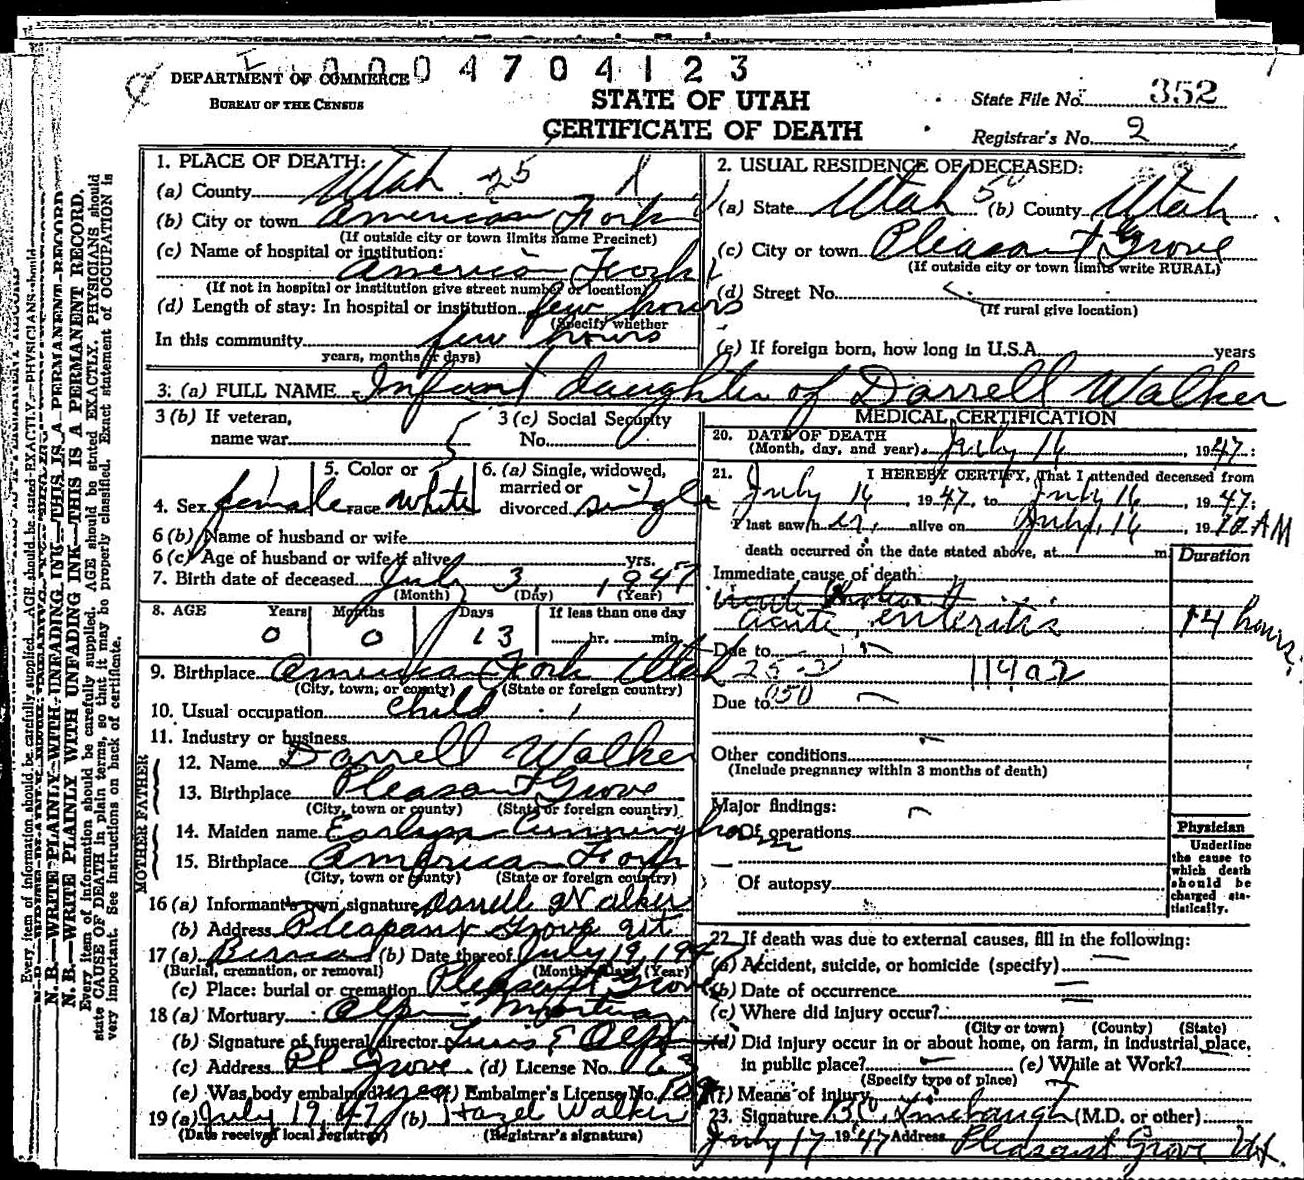 0004704123
DEPARTMENT OF COMMERCE
BUREAU OF THE CENSUS
STATE OF UTAH
CERTIFICATE OF DEATH
State File No. 352
Registrar's No. 2
1. PLACE OF DEATH:
(a) County Utah 25
(b) City or town American Fork
(If outside city or town limits name Precinct)
(c) Name of hospital or institution:
American Fork
(If not in hospital or institution give street number or location)
(d) Length of stay: In hospital or institution few hours
(Specify whether
In this community few hours
years, months or days)
2. USUAL RESIDENCE OF DECEASED:
(a) State Utah (b) County Utah
(c) City or town Pleasant Grove
(If outside city or town limits write RURAL)
(d) Street No.
(If rural give location)
(e) If foreign born, how long in U.S.A. years
3. (a) FULL NAME Infant daughter of Darrell Walker
3 (b) If veteran,
name war
3 (c) Social Security
No.
4. Sex female
5. Color or
race white
6. (a) Single, widowed,
married or
divorced single
6 (b) Name of husband or wife
6 (c) Age of husband or wife if alive yrs.
7. Birth date of deceased July 3, 1947
(Month) (Day) (Year)
8. AGE Years Months Days If less than one day
0 0 13 hr. min.
9. Birthplace American Fork Utah
(City, town, or county) (State or foreign country)
10. Usual occupation child
11. Industry or business
FATHER
12. Name Darrell Walker
13. Birthplace Pleasant Grove
(City, town or county) (State or foreign country)
MOTHER
14. Maiden name Cunningham
15. Birthplace American Fork
(City, town or county) (State or foreign country)
16 (a) Informant's own signature Darrelle Walker
(b) Address Pleasant Grove Ut
17 (a) Burial (b) Date thereof July 19, 1947
(Burial, cremation, or removal) (Month) (Day) (Year)
(c) Place: burial or cremation Pleasant Grove
18 (a) Mortuary Olpin Mortuary
(b) Signature of funeral director E Olpin
(c) Address Pl Grove (d) License No.
(e) Was body embalmed? yes (f) Embalmer's License No.
19 (a) July 19 47 (b) Hazel Walker
(Date received local registrar) (Registrar's signature)
MEDICAL CERTIFICATION
20. DATE OF DEATH
(Month, day, and year) July 16, 1947:
21. I HEREBY CERTIFY, That I attended deceased from
July 16, 1947, to July 16, 1947:
I last saw h er, alive on July, 16, 19 AM
death occurred on the date stated above, at m
Duration
Immediate cause of death:
acute enteritis 14 hours
Due to 25-3 119a2
Due to 050
Other conditions
(Include pregnancy within 3 months of death)
Major findings:
Of operations
Of autopsy
Physician
Underline
the cause to
which death
should be
charged sta-
tistically.
22. If death was due to external causes, fill in the following:
(a) Accident, suicide, or homicide (specify)
(b) Date of occurrence
(c) Where did injury occur?
(City or town) (County) (State)
(d) Did injury occur in or about home, on farm, in industrial place,
in public place? (e) While at Work?
(Specify type of place)
(f) Means of injury
23. Signature (M.D. or other)
July 17 1947 Address Pleasant Grove Ut.
N. B.—WRITE PLAINLY WITH UNFADING INK—THIS IS A PERMANENT RECORD.
Every item of information should be carefully supplied. AGE should be stated EXACTLY. PHYSICIANS should
state CAUSE OF DEATH in plain terms, so that it may be properly classified. Exact statement of OCCUPATION is
very important. See instructions on back of certificate.